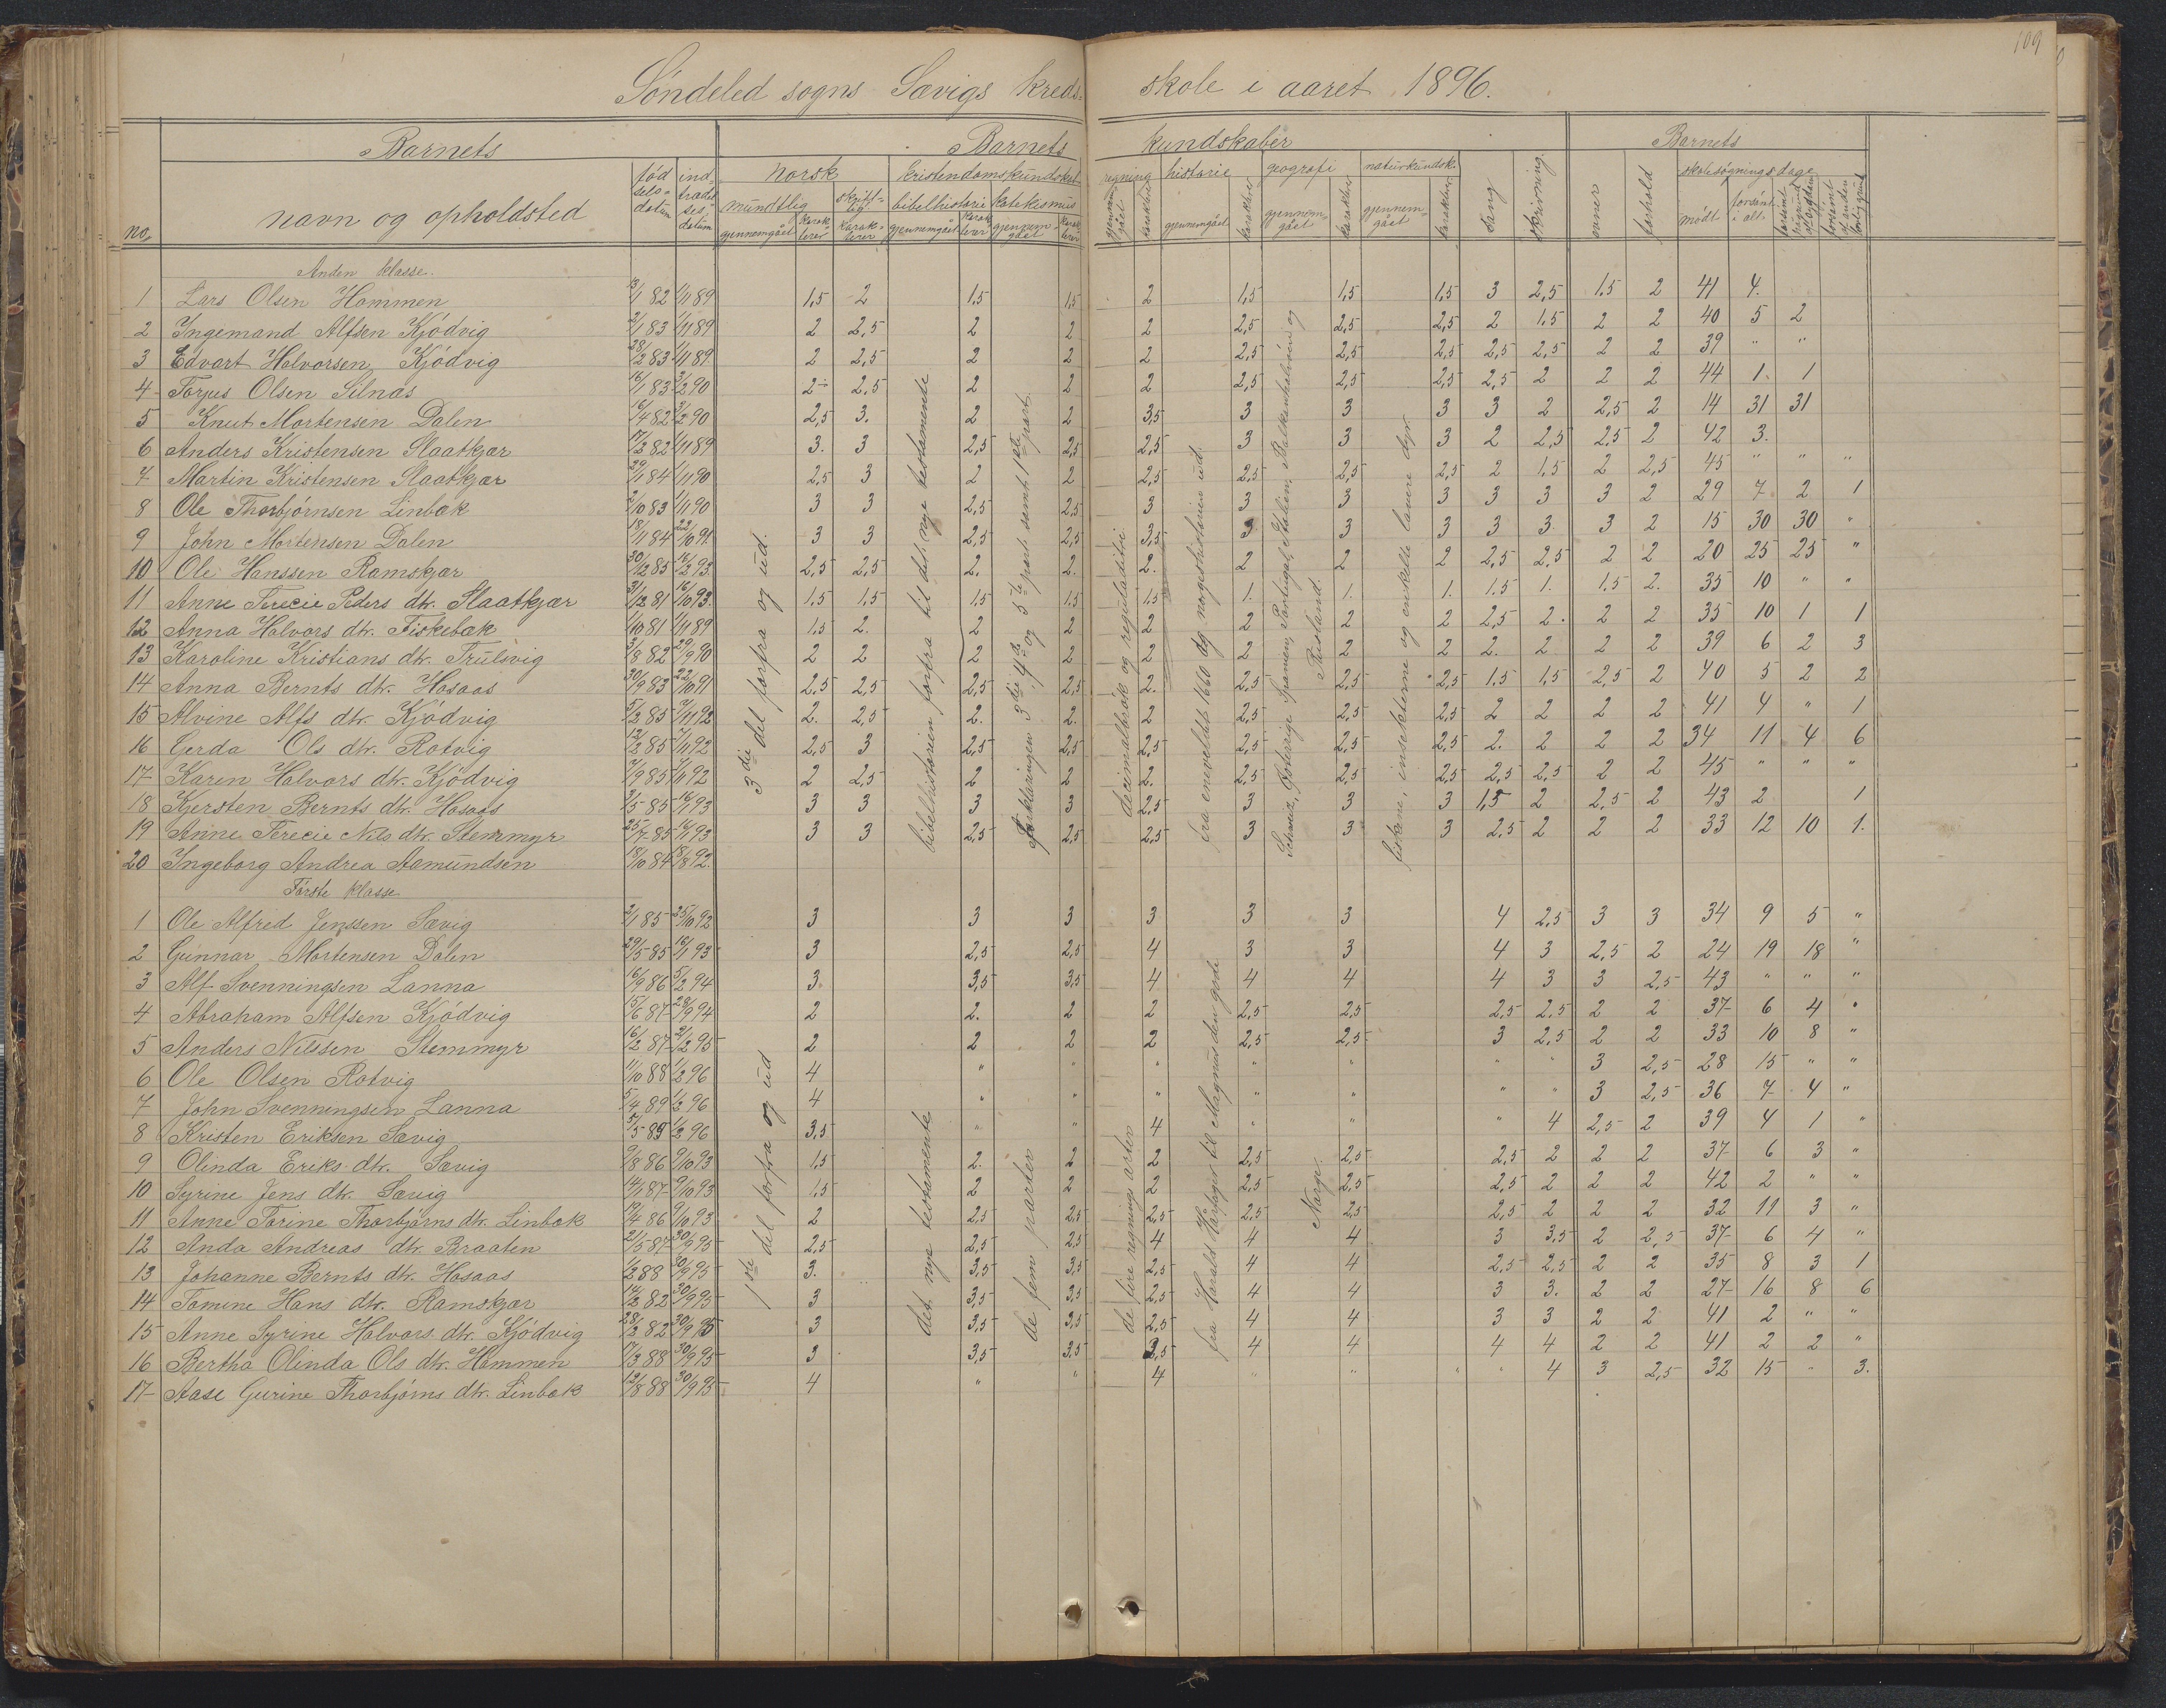 109
Søndeled sogns Sævigs kreds- skole i aaret 1896.
Barnets Barnets kundskaber Barnets
no. navn og opholdsted fødselsdatum indtrædelsesdatum norsk kristendomskundskab regning historie geografi naturkundsk. sang skrivning evner forhold skolesøgningsdage
mundtlig skriftlig bibelhistorie katekismus mødt forsømt i alt
gjennemgået karakterer karakterer gjennemgået karakterer gjennemgået karakterer gjennemgået karakterer gjennemgået karakterer gjennemgået karakterer gjennemgået karakterer
Anden klasse.
1 Lars Olsen Hammen 13/1 82 1/11 89 1,5 2 1,5 1,5 2 1,5 1,5 1,5 3 2,5 1,5 2 41 4.
2 Ingemand Alfsen Kjødvig 2/1 83 1/11 89 2 2,5 2 2 2 2,5 2,5 2,5 2 1,5 2 2 40 5 2
3 Edvart Halvorsen Kjødvig 28/2 83 1/11 89 2 2,5 2 2 2 2,5 2,5 2,5 2,5 2,5 2 2 39 " "
4 Torjus Olsen Silnæs 16/1 83 3/2 90 2 2,5 2 2 2 2,5 2,5 2,5 2,5 2 2 2 44 1 1
5 Knut Mortensen Dalen 6/4 82 3/2 90 2,5 3. 2 2 3,5 3 3 3 3 2 2,5 2 14 31 31
6 Anders Kristensen Slaatkjær 17/2 82 1/11 89 3. 3 2,5 2,5 2,5 3 3 3 2 2,5 2,5 2 42 3.
7 Martin Kristensen Slaatkjær 29/1 84 1/11 90 2,5 3 2 2 2,5 2,5 2,5 2,5 2 1,5 2 2,5 45 " " "
8 Ole Thorbjørnsen Linbæk 2/10 83 1/11 90 3 3 2,5 2,5 3 3 3 3 3 3 3 2 29 7 2 1
9 John Mortensen Dalen 18/11 84 22/10 91 3 3 2,5 2,5 3,5 3 3 3 3 3 3 2 15 30 30 "
10 Ole Hanssen Ramskjær 30/12 85 16/2 93. 2,5 2,5 2. 2. 2. 2 2 2 2,5 2,5 2 2 20 25 25 "
11 Anne Terecie Peders dtr. Slaatkjær 31/12 81 16/10 93. 1,5 1,5 1,5 1,5 1,5 1. 1. 1. 1.5 1. 1,5 2. 35 10 " "
12 Anna Halvors dtr. Fiskebæk 1/10 81 1/11 89 1,5 2. 2 2 2 2 2 2 2,5 2. 2 2 35 10 1 1
13 Karoline Kristians dtr. Trulsvig 3/8 82 29/9 90 2 2 2 2 2 2 2 2 2. 2 2 2 39 6 2 3
14 Anna Bernts dtr. Hasaas 30/9 83 22/10 91 2,5 2,5 2,5 2,5 2. 2,5 2,5 2,5 1,5 1,5 2,5 2 40 5 2 2
15 Alvine Alfs dtr. Kjødvig 5/2 85 7/11 92 2. 2,5 2. 2. 2 2,5 2,5 2,5 2 2 2 2 41 4 " 1
16 Gerda Ols dtr. Rotvig 12/2 85 7/11 92 2,5 3 2,5 2,5 2,5 2,5 2,5 2,5 2. 2 2 2 34 11 4 6
17 Karen Halvors dtr. Kjødvig 7/9 85 7/11 92 2 2,5 2 2 2. 2,5 2,5 2,5 2,5 2,5 2 2 45 " " "
18 Kjersten Bernts dtr. Hasaas 3/5 85 16/1 93 3 3 3 3 2,5 3 3 3 1,5 2 2,5 2 43 2 1
19 Anne Terecie Nils dtr. Stemmyr 25/7 85 16/1 93 3 3 2,5 2,5 2,5 3 3 3 2,5 2 2 2 33 12 10 1.
20 Ingeborg Andrea Aamundsen 18/10 84 18/8 92.
3die del forfra og ud.
bibelhistorien forfra til det nye testamende
forklaringen 3die 4de og 5te part samt 1ste part.
decimalbrøk og reguladitri.
fra eneveldet 1660 og norgeshistorien ud.
Schweiz, Østerrige, Spanien, Portugal, Italien, Balkanhalvøen og Rusland.
fiskene, insekterne og enkelte lavere dyr.
Første klasse
1 Ole Alfred Jenssen Sævig 2/1 85 25/10 92 3 3 3 3 3 3 4 2,5 3 3 34 9 5 "
2 Gunnar Mortensen Dalen 29/5 85 16/1 93 3 2,5 2,5 4 3 3 4 3 2,5 2 24 19 18 "
3 Alf Svenningsen Lanna 16/9 86 5/2 94 3. 3,5 3,5 4 4 4 4 3 3 2,5 43 " " "
4 Abraham Alfsen Kjødvig 15/6 87 28/9 94 2 2. 2 2 2,5 2,5 2,5 2,5 2 2 37 6 4 "
5 Anders Nilssen Stemmyr 16/2 87 2/12 95 2 2 2 2 2,5 2,5 3 2,5 2 2 33 10 8 "
6 Ole Olsen Rotvig 11/10 88 1/2 96 4 " " " " " " " 3 2,5 28 15 " "
7 John Svenningsen Lanna 5/4 89 1/2 96 4 " " " " " " " 3 2,5 36 7 4 "
8 Kristen Eriksen Sævig 5/5 89 1/2 96 3,5 " " 4 " " " 4 2,5 2 39 4 1 "
9 Olinda Eriks dtr. Sævig 9/8 86 9/10 93 1,5 2. 2 2 2,5 2,5 2,5 2 2 2 37 6 3 "
10 Syrine Jens dtr. Sævig 14/1 87 9/10 93 1,5 2 2 2 2,5 2,5 2,5 2 2 2 42 2 " "
11 Anne Torine Thorbjørns dtr. Linbæk 19/4 86 9/10 93 2 2,5 2,5 2,5 2,5 2,5 2,5 2 2 2 32 11 3 "
12 Anda Andreas dtr. Braaten 21/5 87 30/9 95 2,5 2,5 2,5 4 4 4 3 3,5 2 2,5 37 6 4 "
13 Johanne Bernts dtr. Hasaas 1/2 88 30/9 95 3. 3,5 3,5 2,5 4 4 2,5 2,5 2 2 35 8 3 1
14 Tomine Hans dtr. Ramskjær 14/2 82 30/9 95 3 3,5 3,5 2,5 4 4 3 3. 2 2 27 16 8 6
15 Anne Syrine Halvors dtr. Kjødvig 28/2 82 30/9 95 3 3,5 3,5 2,5 4 4 3 3 2 2 41 2 " "
16 Bertha Olinda Ols dtr. Hammen 17/3 88 30/9 95 3 3,5 3,5 3,5 4 4 4 4 2 2 41 2 2 "
17 Aase Gurine Thorbjørns dtr. Linbæk 12/8 88 30/9 95 4 " " 4 " " " " 4 3 2,5 32 15 " 3.
1ste del forfra og ud
det nye testamente
de fem parter
de fire regnings arter
fra Harald Hårfager til Magnus den gode
Norge.